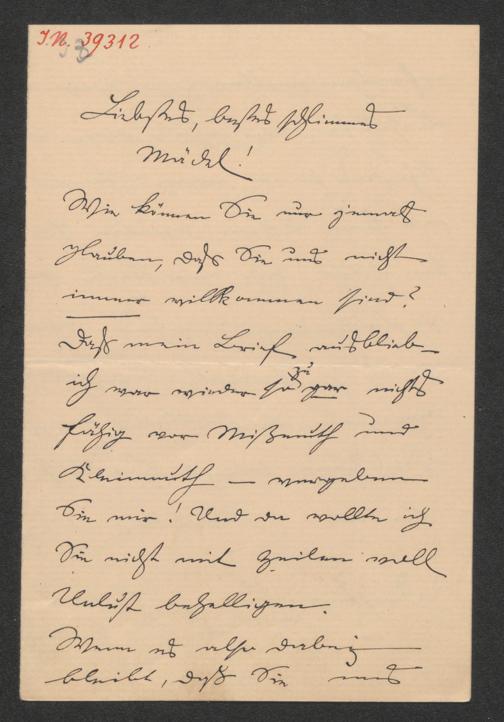 I.N. 39312
Liebstes, bestes schlimmes
Mädel!
Wie können Sie nur jemals
glauben, daß Sie uns nicht
immer willkommen sind?
Daß mein Brief ausblieb –
ich war wieder so zu gar nichts
fähig vor Mißmuth und
Kleinmuth – vergeben
Sie mir! Und da wollte ich
Sie nicht mit Zeilen voll
Unlust behelligen.
Wenn es also dabei
bleibt, daß Sie uns